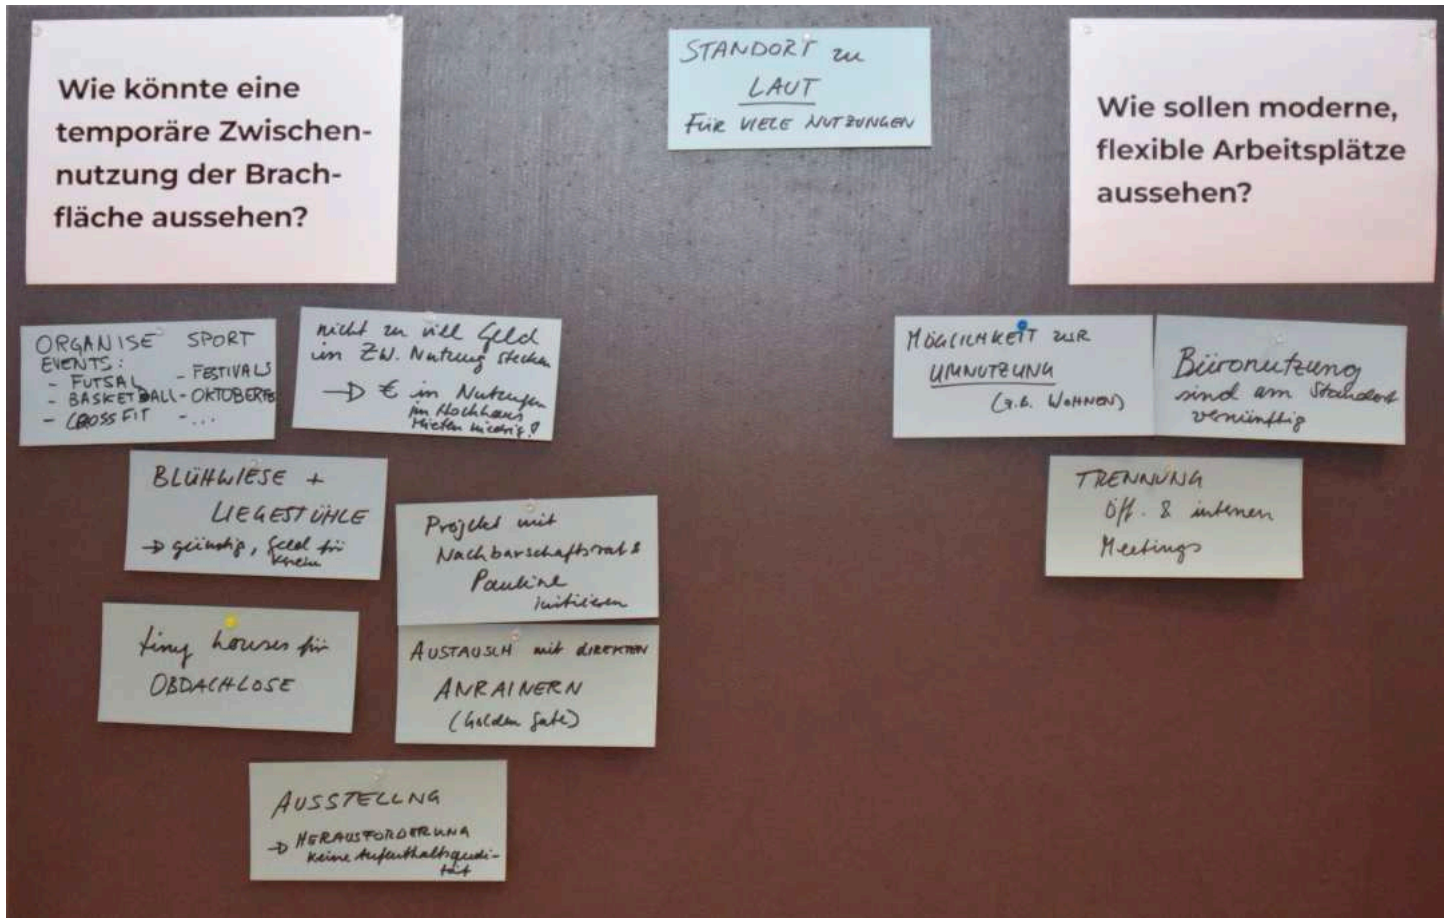 Wie könnte eine
temporäre Zwischen-
nutzung der Brach-
fläche aussehen?
STANDORT zu
LAUT
FÜR VIELE NUTZUNGEN
Wie sollen moderne,
flexible Arbeitsplätze
aussehen?
ORGANISE SPORT
EVENTS:
- FUTSAL - FESTIVALS
- BASKETBALL - OKTOBERFES
- CROSSFIT - ...
nicht zu viel Geld
in Zw. Nutzung stecken
→ € in Nutzungen
im Hochhaus
Mieten niedrig!
BLÜHWIESE +
LIEGESTÜHLE
→ günstig, Geld für
PROJEKT mit
Nachbarschaftsrat &
Pauline
initiieren
tiny houses für
OBDACHLOSE
AUSTAUSCH mit DIREKTEN
ANRAINERN
(Golden Gate)
AUSSTELLNG
→ HERAUSFORDERUNG
keine Aufenthaltsquali-
tät
MÖGLICHKEIT ZUR
UMNUTZUNG
(z.B. WOHNEN)
Büronutzung
sind am Standort
vernünftig
TRENNUNG
öff. & internen
Meetings